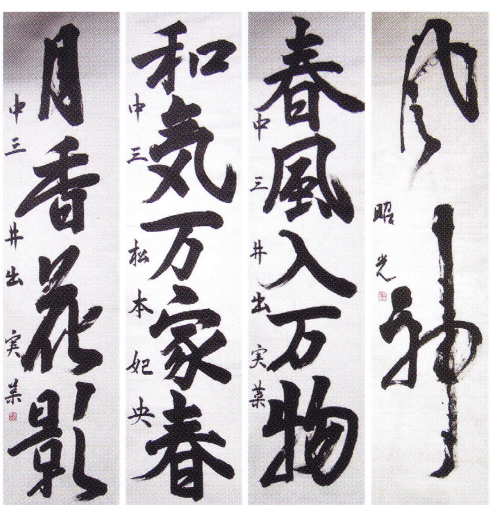 風神
昭光
春風入万物
中三 井出実菜
和気万家春
中三 松本妃央
月香花影
中三 井出実菜